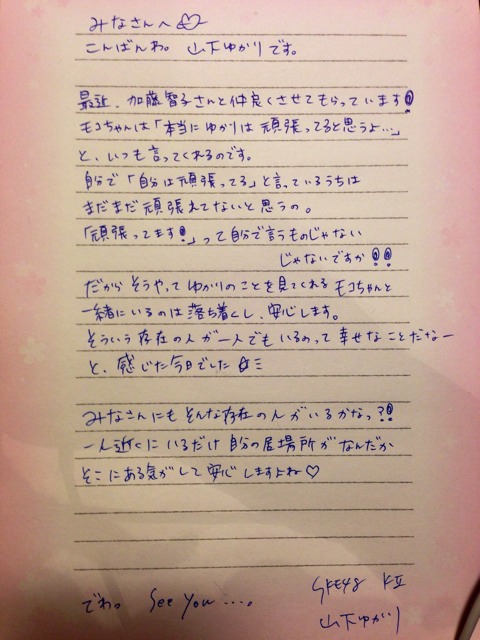 みなさんへ♡
こんばんわ。 山下ゆかりです。
最近、加藤智子さんと仲良くさせてもらっています!
モコちゃんは「本当にゆかりは頑張ってると思うよ…」
と、いつも言ってくれるのです。
自分で「自分は頑張ってる」と言っているうちは
まだまだ頑張れてないと思うの。
「頑張ってます!」って自分で言うものじゃない
じゃないですか!!
だからそうやってゆかりのことを見てくれるモコちゃんと
一緒にいるのは落ち着くし、安心します。
そういう存在の人が一人でもいるのって幸せなことだなー
と、感じた今日でした☆ミ
みなさんにもそんな存在の人がいるかなっ?!
一人近くにいるだけ自分の居場所がなんだか
そこにある気がして安心しますよね♡
でわ。 See you….。
SKE48 KⅡ
山下ゆかり